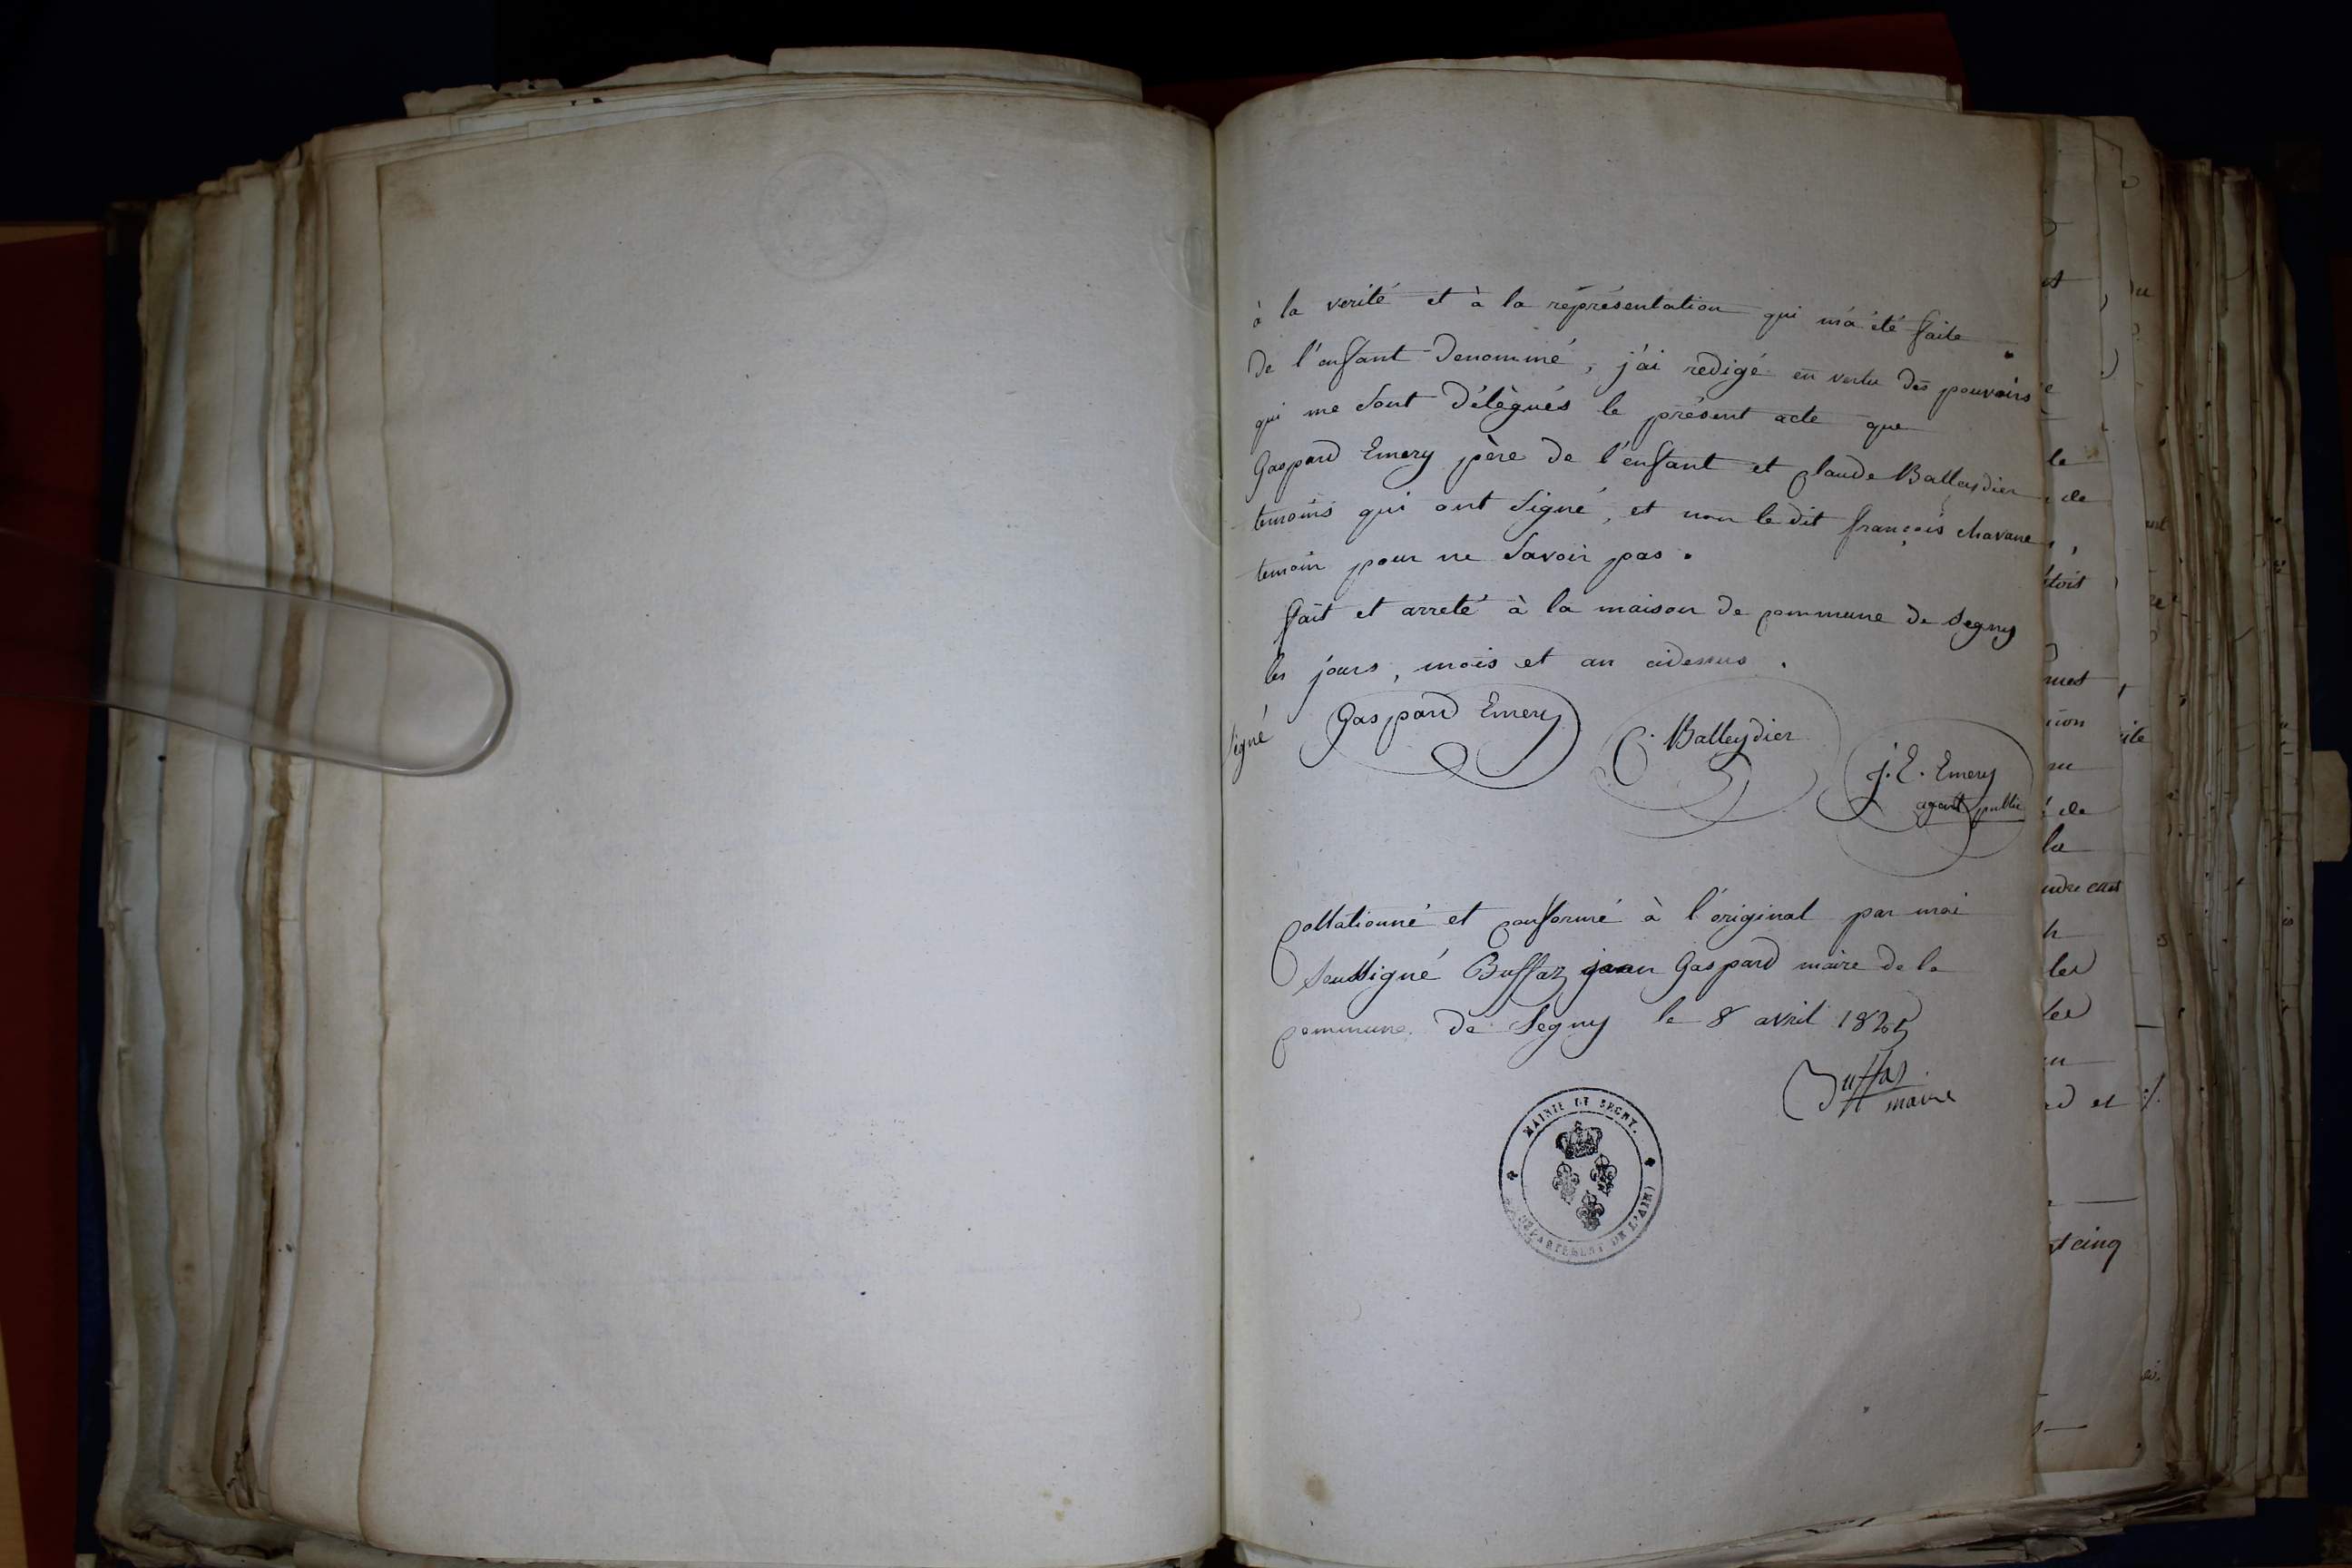 à la verité et à la représentation qui m'a été faite
de l'enfant denommé, j'ai redigé en vertu des pouvoirs
qui me sont délègués le présent acte que
Gaspard Emery père de l'enfant et Claude Balleydier
temoins qui ont signé, et non le dit françois chavane
temoin pour ne savoir pas.
fait et arreté à la maison de commune de Segny
les jours, mois et an cidessus.
Signé Gaspard Emery
C. Balleydier
J. E. Emery
agent public
Collationné et conformé à l'original par moi
Soussigné Buffaz jean Gaspard maire de la
commune de Segny le 8 avril 1825
Buffaz
maire
MAIRIE DE SEGNY.
DÉPARTEMENT DE L'AIN)
et
le
de
la
les
et cinq